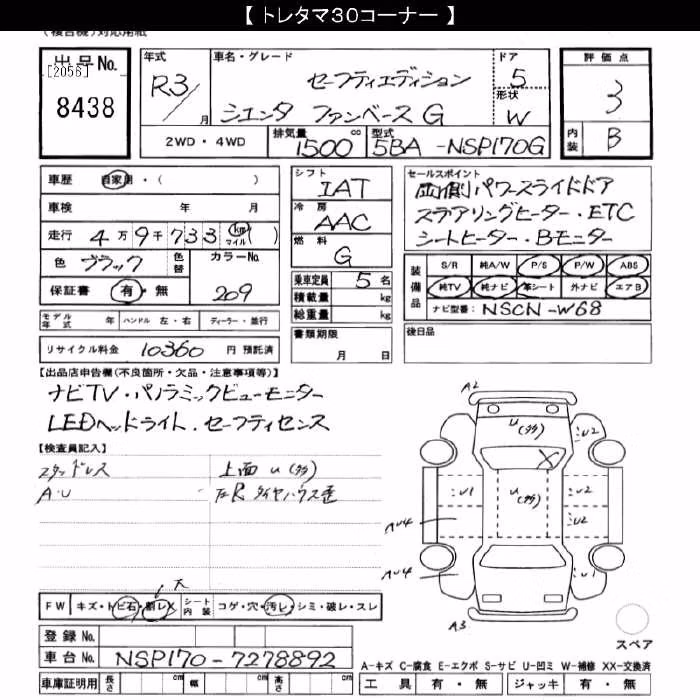 【 トレタマ30コーナー 】
出品No.
[2056]
8438
年式
R3/
月
車名・グレード
セーフティエディション
シエンタ ファンベースG
ドア
5
形状
W
評価点
3
内装
B
2WD・4WD
排気量
1500
cc
型式
5BA-NSP170G
車歴
自家用・( )
車検 年 月
走行 4万9千733 km マイル ( )
色 ブラック
色替
カラーNo.
209
保証書 有・無
シフト
IAT
冷房
AAC
燃料
G
乗車定員 5名
積載量 kg
総重量 kg
セールスポイント
両側パワースライドドア
ステアリングヒーター・ETC
シートヒーター・Bモニター
装備品
S/R 純A/W P/S P/W ABS
純TV 純ナビ 革シート 外ナビ エアB
ナビ型番: NSCN-W68
モデル年式 年 ハンドル 左・右 ディーラー・並行
リサイクル料金 10360 円 預託済
書類期限
月 日
後日品
【出品店申告欄(不良箇所・欠品・注意事項等)】
ナビTV・パノラミックビューモニター
LEDヘッドライト・セーフティセンス
【検査員記入】
スタッドレス
A・U
上面 U(多)
左R タイヤハウス歪
A2
U(多)
U(多)
U1
U2
U2
U1
A3
大
FW キズ・トビ石・割レ
シート内装 コゲ・穴・汚レ・シミ・破レ・スレ
登録No.
車台No. NSP170-7278892
車庫証明用 長さ cm 幅 cm 高さ cm
スペア
A-キズ C-腐食 E-エクボ S-サビ U-凹ミ W-補修 XX-交換済
工具 有・無 ジャッキ 有・無